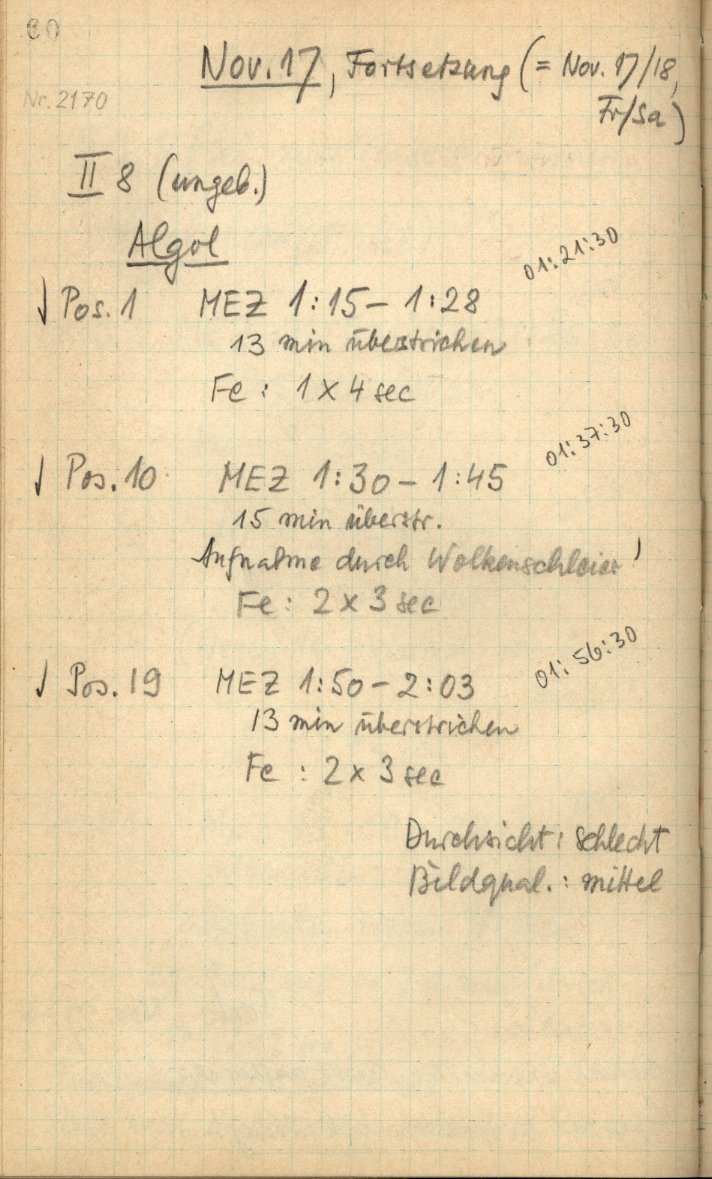 60
Nov. 17, Fortsetzung (= Nov. 17/18,
Fr/Sa)
Nr. 2170
II 8 (ungeb.)
Algol
01:21:30
Pos. 1 MEZ 1:15 – 1:28
13 min überstrichen
Fe : 1 x 4 sec
01:37:30
Pos. 10 MEZ 1:30 – 1:45
15 min überstr.
Aufnahme durch Wolkenschleier !
Fe : 2 x 3 sec
01:56:30
Pos. 19 MEZ 1:50 – 2:03
13 min überstrichen
Fe : 2 x 3 sec
Durchsicht : schlecht
Bildqual. : mittel